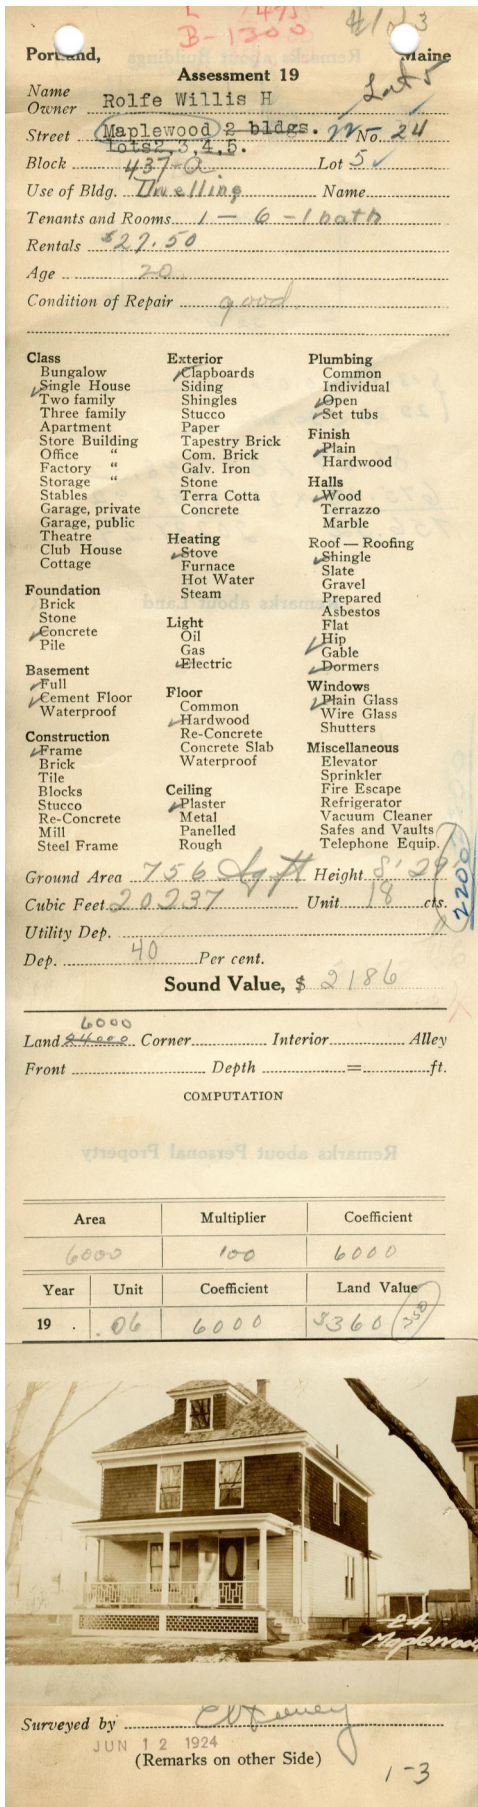 L 475
B-1300
#1 of 3
Portland, Maine
Assessment 19
Lot 5
Name
Owner Rolfe Willis H
Street Maplewood 2 bldgs. No. 24
lots2,3,4,5.
Block 437-A Lot 5
Use of Bldg. Dwelling Name
Tenants and Rooms 1 - 6 - 1 bath
Rentals $27.50
Age 20
Condition of Repair good
Class
Bungalow
Single House
Two family
Three family
Apartment
Store Building
Office "
Factory "
Storage "
Stables
Garage, private
Garage, public
Theatre
Club House
Cottage
Foundation
Brick
Stone
Concrete
Pile
Basement
Full
Cement Floor
Waterproof
Construction
Frame
Brick
Tile
Blocks
Stucco
Re-Concrete
Mill
Steel Frame
Exterior
Clapboards
Siding
Shingles
Stucco
Paper
Tapestry Brick
Com. Brick
Galv. Iron
Stone
Terra Cotta
Concrete
Heating
Stove
Furnace
Hot Water
Steam
Light
Oil
Gas
Electric
Floor
Common
Hardwood
Re-Concrete
Concrete Slab
Waterproof
Ceiling
Plaster
Metal
Panelled
Rough
Plumbing
Common
Individual
Open
Set tubs
Finish
Plain
Hardwood
Halls
Wood
Terrazzo
Marble
Roof — Roofing
Shingle
Slate
Gravel
Prepared
Asbestos
Flat
Hip
Gable
Dormers
Windows
Plain Glass
Wire Glass
Shutters
Miscellaneous
Elevator
Sprinkler
Fire Escape
Refrigerator
Vacuum Cleaner
Safes and Vaults
Telephone Equip.
Ground Area 756 Sq ft Height 8' 29
Cubic Feet 20237 Unit 18 cts.
2200
Utility Dep.
Dep. 40 Per cent.
Sound Value, $ 2186
6000
Land 24000 Corner Interior Alley
Front Depth = ft.
COMPUTATION
Remarks about Personal Property
Area Multiplier Coefficient
6000 100 6000
Year Unit Coefficient Land Value
19 . .06 6000 $360 350
24
Maplewood
Surveyed by
JUN 12 1924
(Remarks on other Side)
1-3